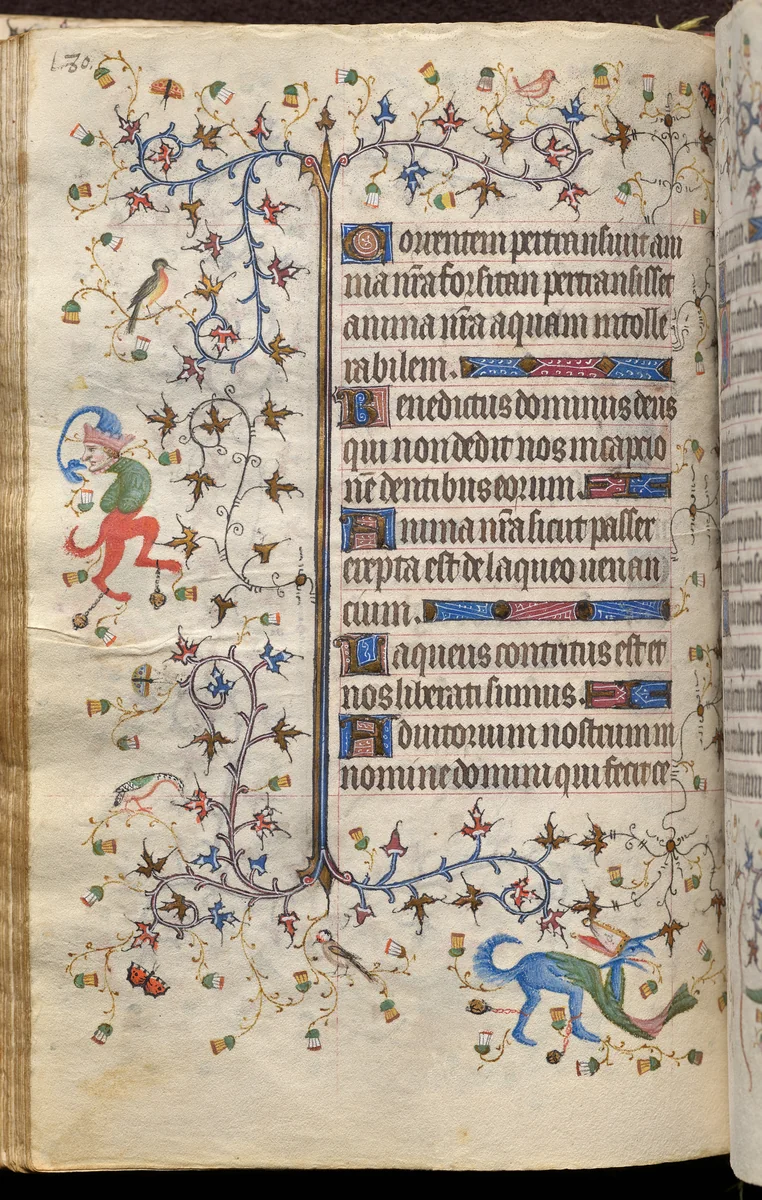 130.
Torrentem pertransiuit ani
ma nr̄a forsitan pertransisset
anima nr̄a aquam intolle
rabilem.
Benedictus dominus deus
qui non dedit nos in captio
nē dentibus eorum.
Anima nr̄a sicut passer
erepta est de laqueo uenan
cium.
Laqueus contritus est et
nos liberati sumus.
Adiutorium nostrum in
nomine domini qui fecit ce